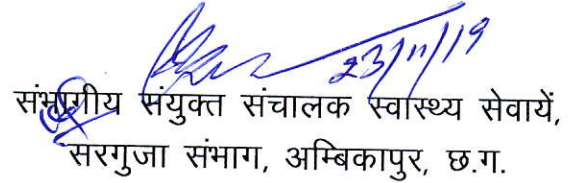 23/11/19
संभागीय संयुक्त संचालक स्वास्थ्य सेवायें,
सरगुजा संभाग, अम्बिकापुर, छ.ग.